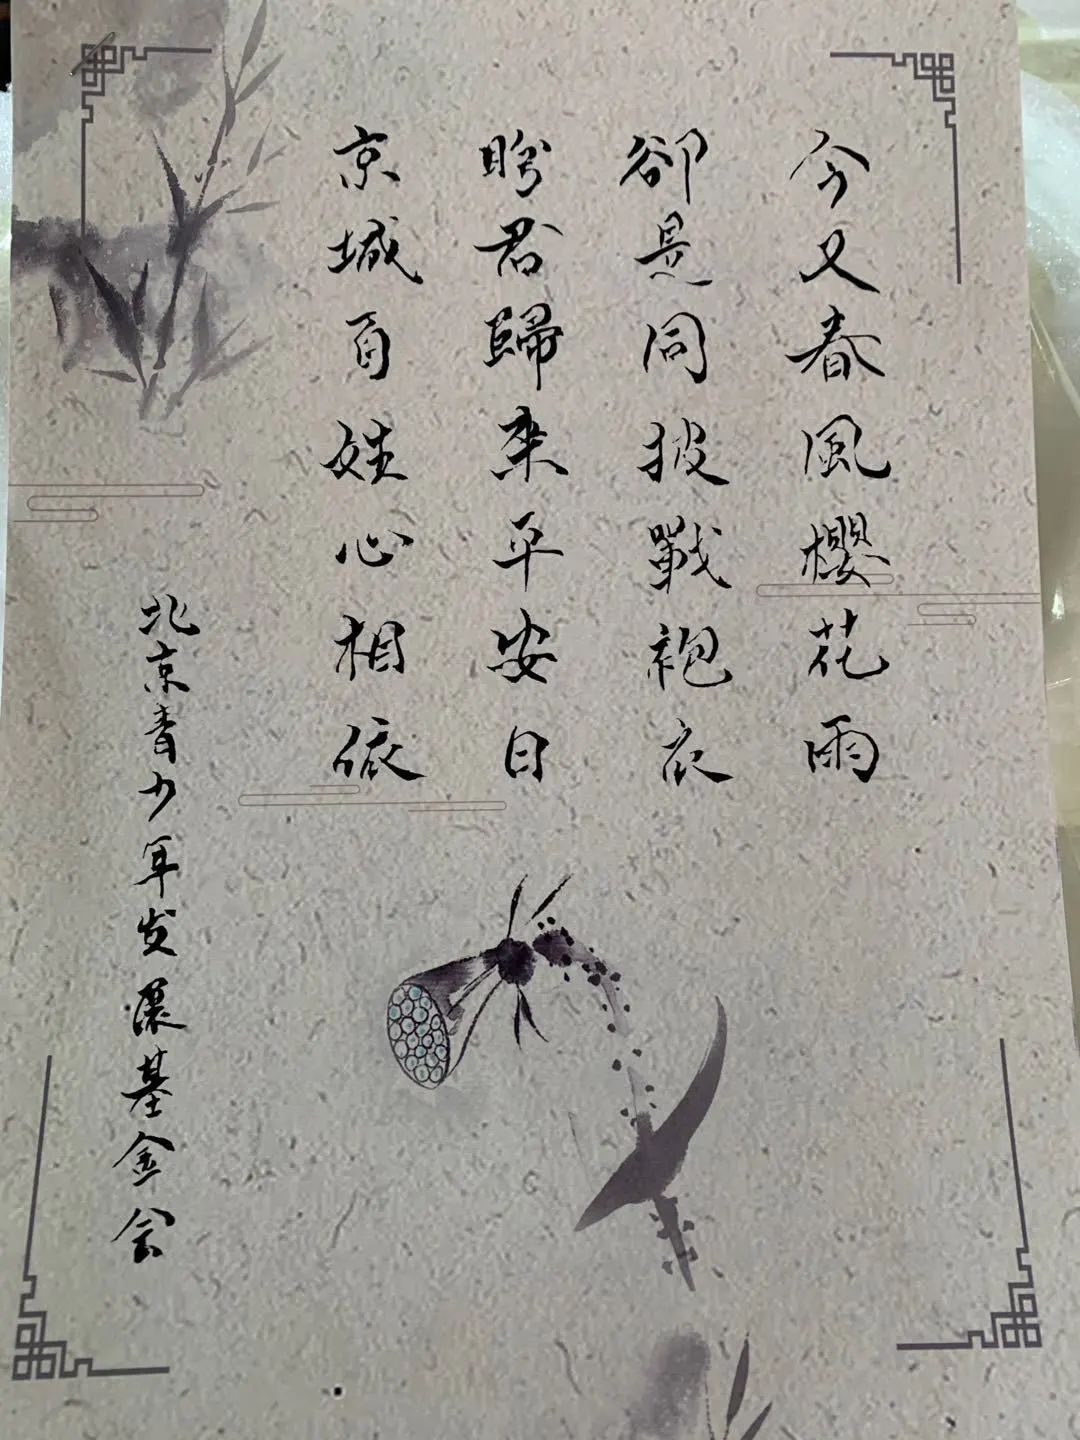 今又春風櫻花雨
卻是同披戰袍衣
盼君歸來平安日
京城百姓心相依
北京青少年发展基金会